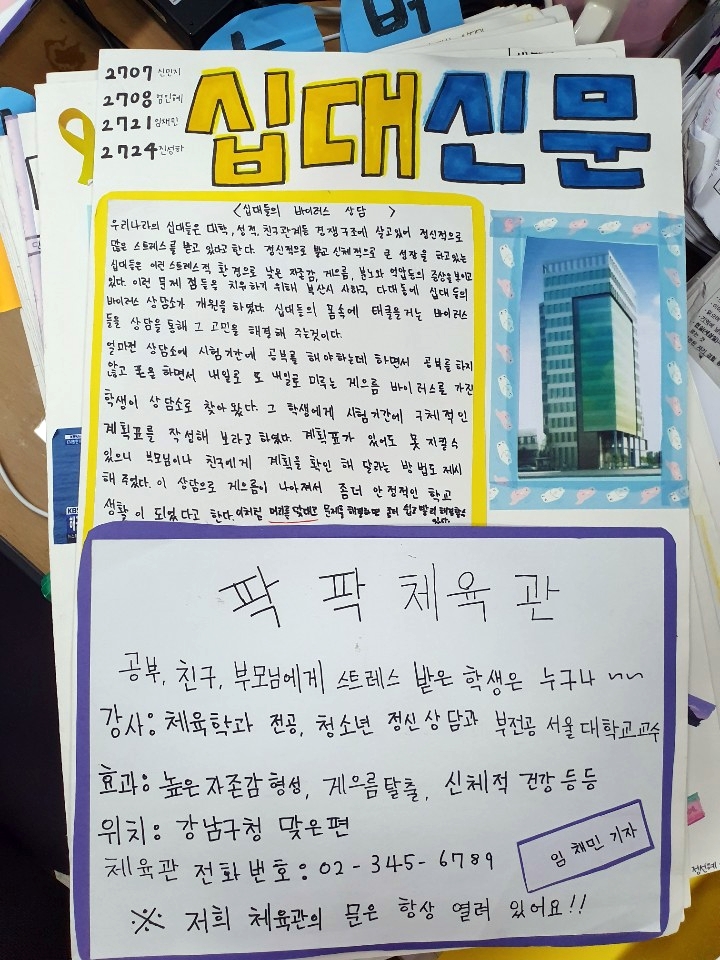 2707 신민지
2708
2721 임채민
2724 진성하
십대신문
<십대들의 바이러스 상담>
우리나라의 십대들은 대학, 성적, 친구관계등 경쟁구조에 살고있어 정신적으로
많은 스트레스를 받고 있다고 한다. 정신적으로 밝고 신체적으로 큰 성장을 하고있는
십대들은 이런 스트레스적 환경으로 낮은 자존감, 게으름, 분노와 억압등의 증상을 보이고
있다. 이런 문제 점들을 치유하기 위해 부산시 사하구 다대동에 십대들의
바이러스 상담소가 개원을 하였다. 십대들의 몸속에 태클을거는 바이러스
들을 상담을 통해 그 고민을 해결해 주는것이다.
얼마전 상담소에 시험기간에 공부를 해야하는데 하면서 공부를 하지
않고 폰을 하면서 내일로 또 내일로 미루는 게으름 바이러스를 가진
학생이 상담소로 찾아왔다. 그 학생에게 시험기간에 구체적인
계획표를 작성해 보라고 하였다. 계획표가 있어도 못 지킬수
있으니 부모님이나 친구에게 계획을 확인 해 달라는 방법도 제시
해 주었다. 이 상담으로 게으름이 나아져서 좀더 안정적인 학교
생활이 되었다고 한다. 이처럼 머리를 맞대고 문제를 해결하면 좀더 쉽고 빨리 해결할수
있다.
팍팍체육관
공부, 친구, 부모님에게 스트레스 받은 학생은 누구나 ~~
강사: 체육학과 전공, 청소년 정신상담과 부전공 서울대학교교수
효과: 높은 자존감 형성, 게으름탈출, 신체적 건강 등등
위치: 강남구청 맞은편
체육관 전화번호: 02-345-6789
임채민 기자
※ 저희 체육관의 문은 항상 열려 있어요!!